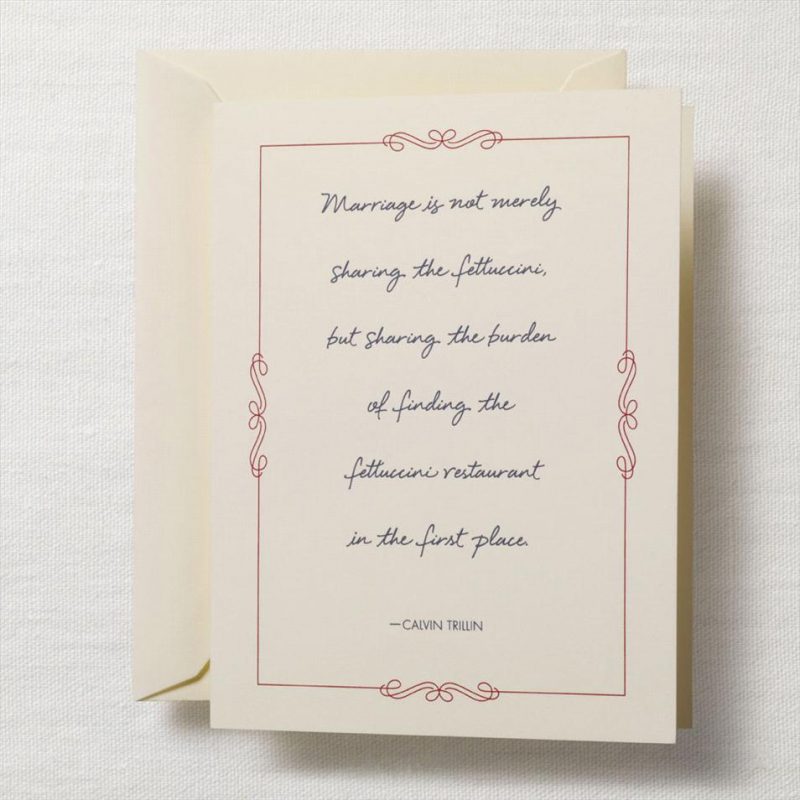 Marriage is not merely
sharing the fettuccini,
but sharing the burden
of finding the
fettuccini restaurant
in the first place.
—CALVIN TRILLIN